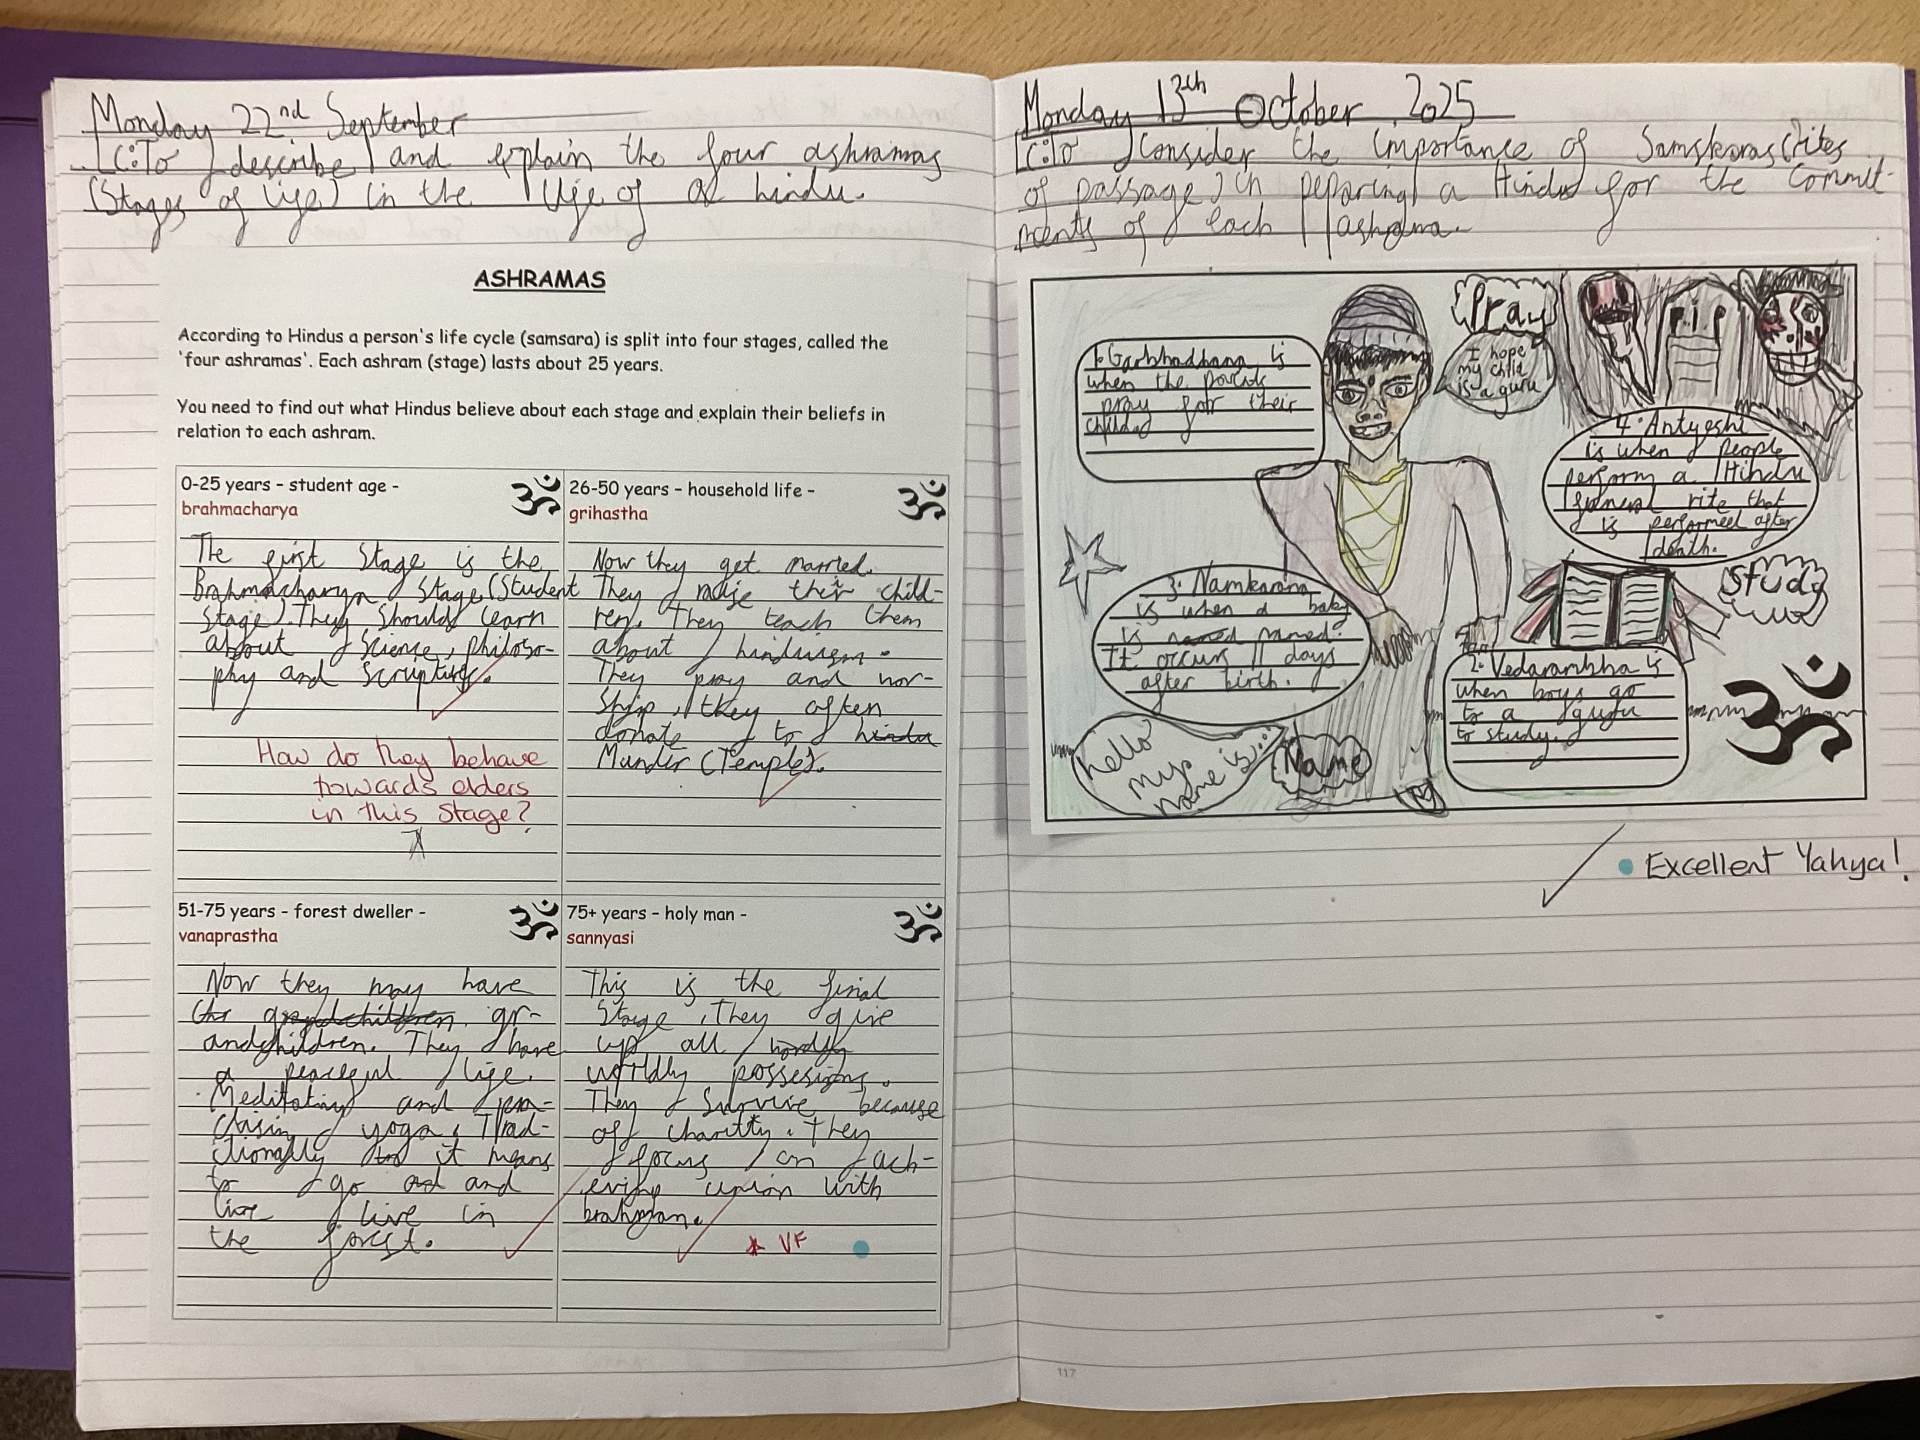 Monday 22nd September
LC: To describe and explain the four ashramas
(Stages of life) in the life of a hindu.
ASHRAMAS
According to Hindus a person's life cycle (samsara) is split into four stages, called the
'four ashramas'. Each ashram (stage) lasts about 25 years.
You need to find out what Hindus believe about each stage and explain their beliefs in
relation to each ashram.
0-25 years - student age -
brahmacharya
The first stage is the
Brahmacharya Stage (Student
stage). They should learn
about science, philoso-
phy and scriptures.
How do they behave
towards elders
in this stage?
26-50 years - household life -
grihastha
Now they get married.
They raise their child-
ren. They teach them
about hinduism.
They pray and wor-
ship, they often
donate to hindu
Mandir (Temple).
51-75 years - forest dweller -
vanaprastha
Now they may have
grandchildren gr-
andchildren. They have
a peaceful life.
Meditating and pra-
ctising yoga. Trad-
itionally it means
to go and
live live in
the forest.
75+ years - holy man -
sannyasi
This is the final
Stage, They give
up all
worldly possesions.
They survive because
off charitty. They
focus on ach-
eving union with
brahman.
VF
Monday 13th October 2025
LC: To Consider the importance of Samskaras (rites
of passage) in peparing a Hindu for the Commit-
ments of each ashrama.
1. Garbhadhana is
when the parents
pray for their
child.
Pray
I hope
my child
is a guru
r.i.p
4. Antyeshi
is when people
perform a Hindu
funeral rite that
is performed after
death.
3. Namkarana
is when a baby
is named named.
It occurs 11 days
after birth.
Study
2. Vedarambha is
when boys go
to a guru
to study.
hello
my
name is...
Name
Excellent Yahya!
117